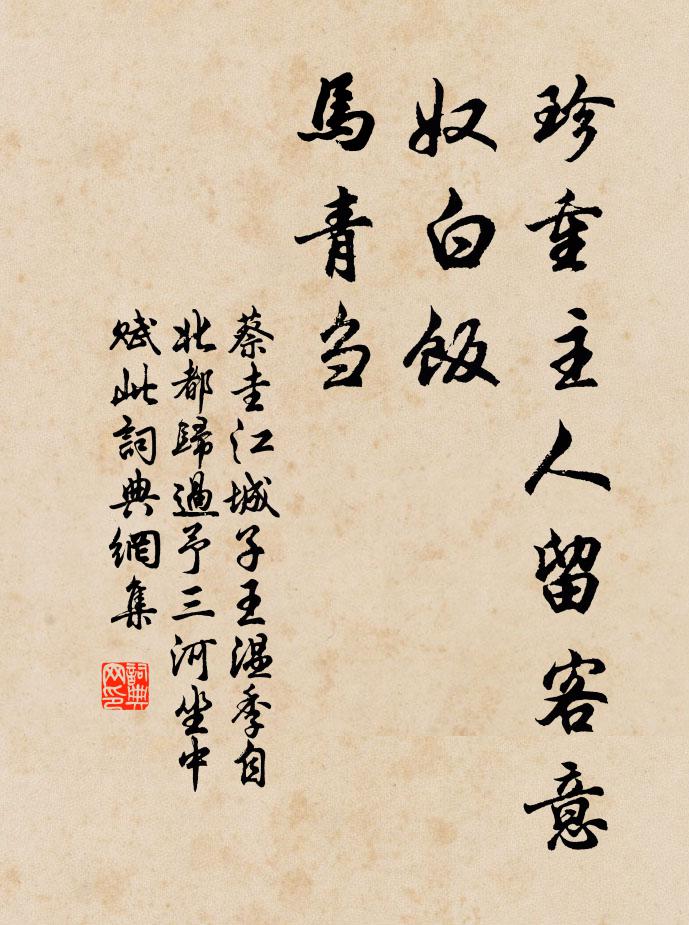 珍重主人留客意
奴白飯
馬青当
蔡圭江城子王温季自
北都歸過予三河坐中
賦此詞典網集
詞典網印